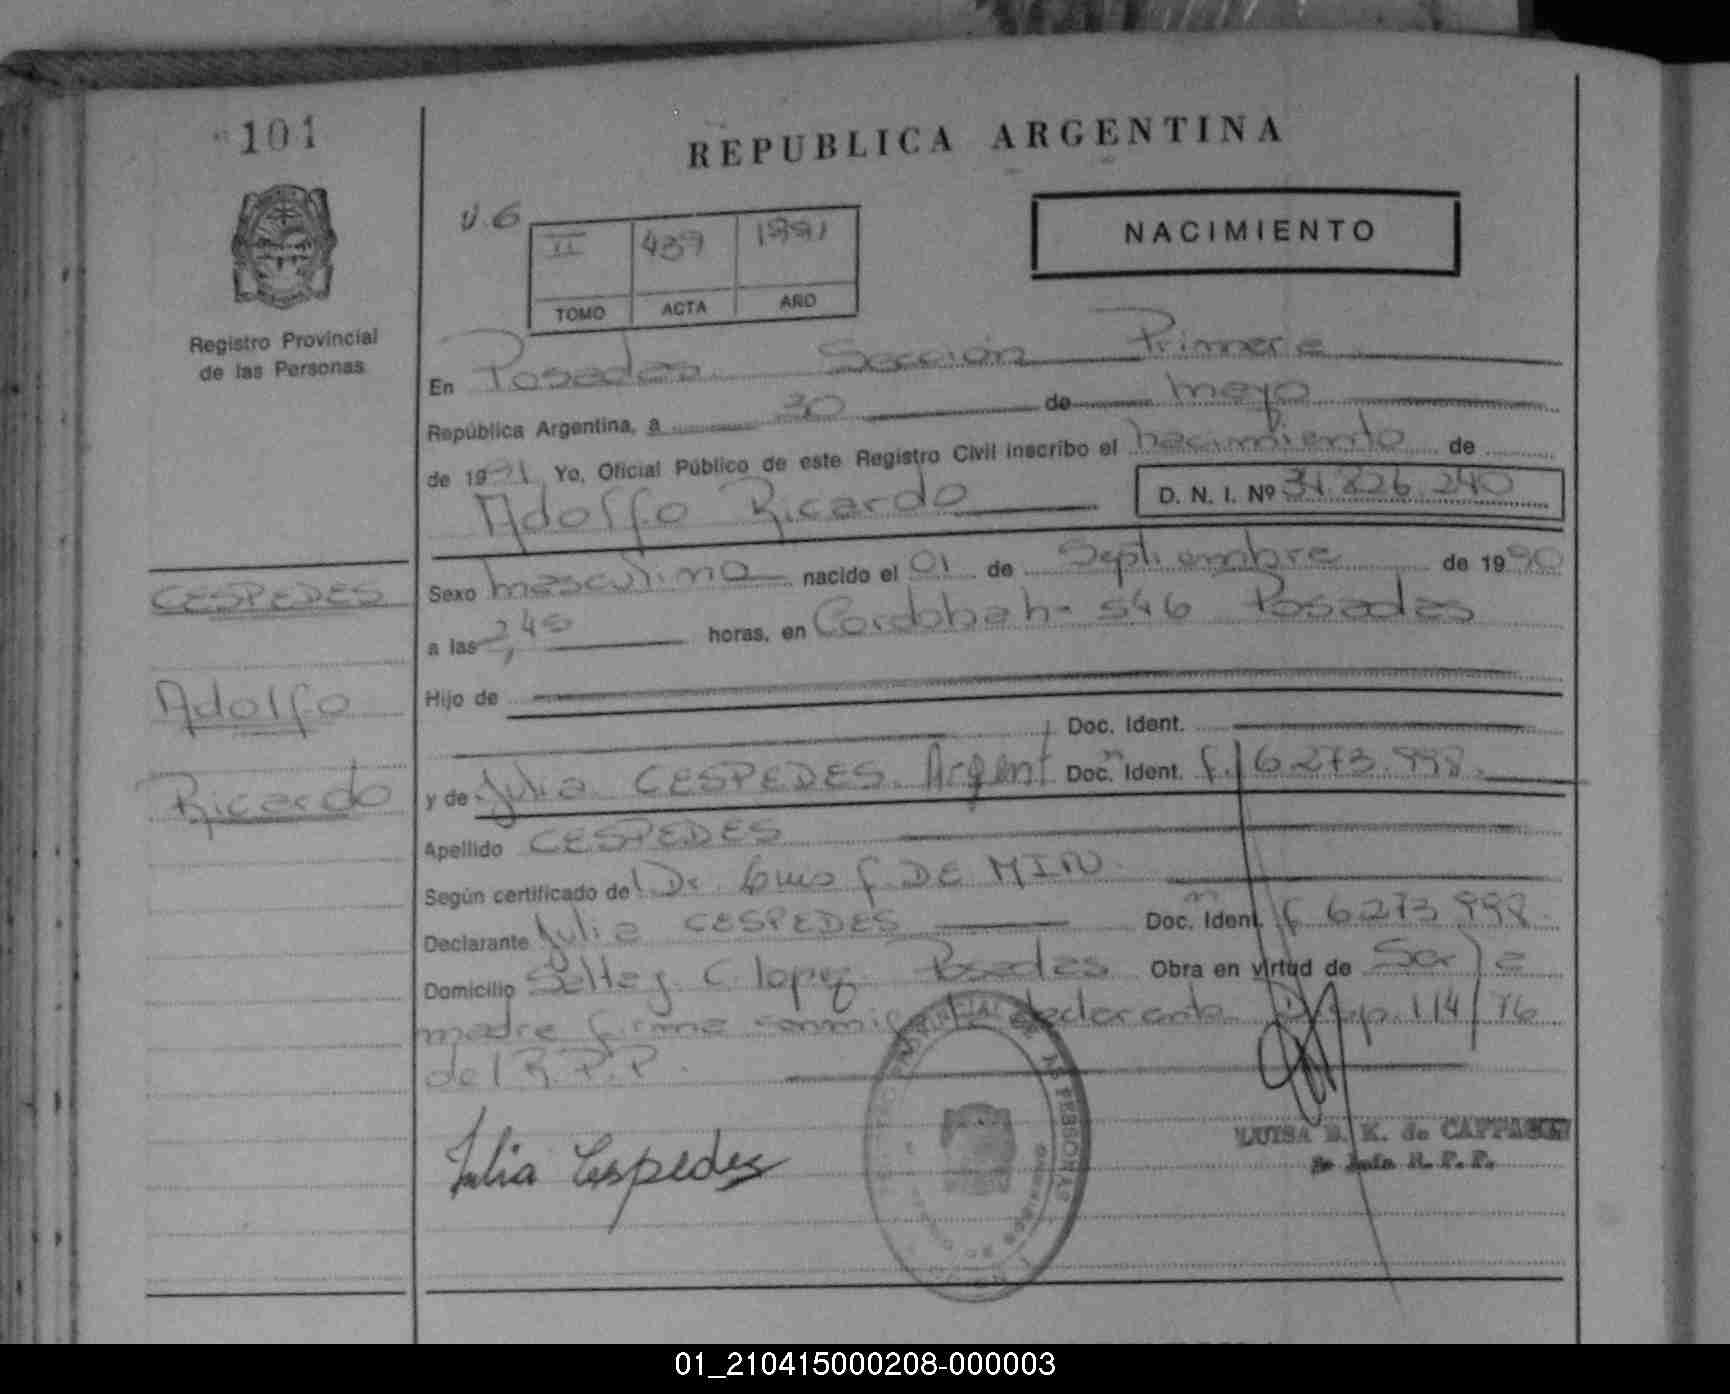 101
REPUBLICA ARGENTINA
NACIMIENTO
II 439 1991
TOMO ACTA AÑO
Registro Provincial
de las Personas
En Posadas Sección Primera
República Argentina, a 30 de mayo
de 1991 Yo, Oficial Público de este Registro Civil inscribo el nacimiento de
Adolfo Ricardo D. N. I. Nº 826.240
CESPEDES
Adolfo
Ricardo
Sexo masculino nacido el 01 de Septiembre de 1990
a las 2,45 horas, en 546 Posadas
Hijo de
Doc. Ident.
y de Julia CESPEDES Argent Doc. Ident. f. 6.273.998.
Apellido CESPEDES
Según certificado del Dr. DE MIN
Declarante Julia CESPEDES Doc. Ident. f 6.273.998.
Domicilio Salta y C. lopez Posadas Obra en virtud de Ser la
madre firma conmigo la declarante Disp. 114/76
del R.P.P.
Julia Cespedes
LUISA B. K. de
R. P. P.
01_210415000208-000003